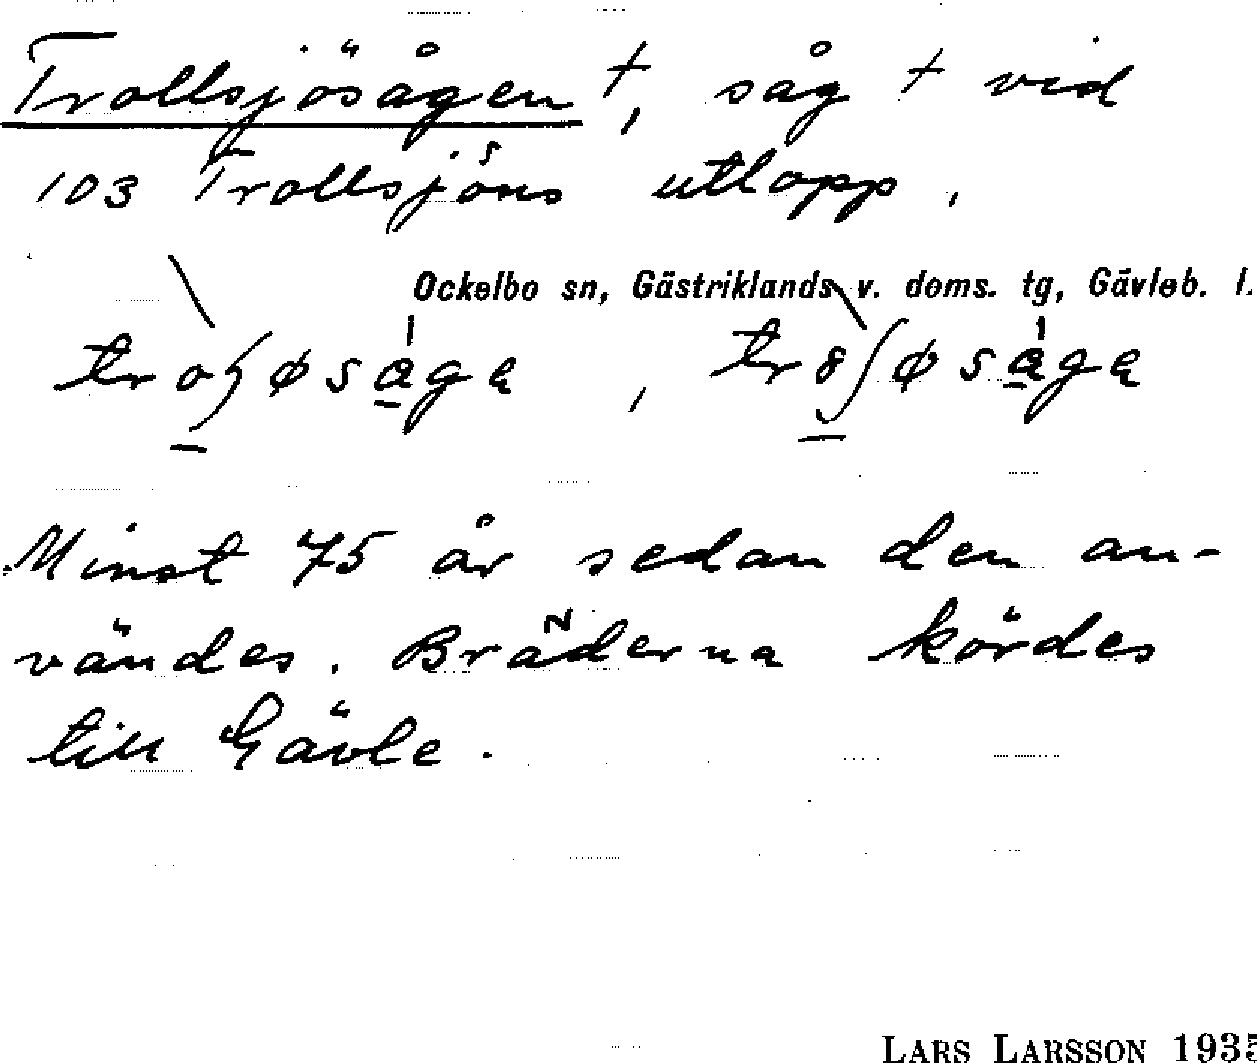 Trollsjösågen †, såg † vid
103 Trollsjöns utlopp.
Ockelbo sn, Gästriklands v. doms. tg, Gävleb. l.
Minst 75 år sedan den an-
vändes. Bräderna kördes
till Gävle.
LARS LARSSON 1935